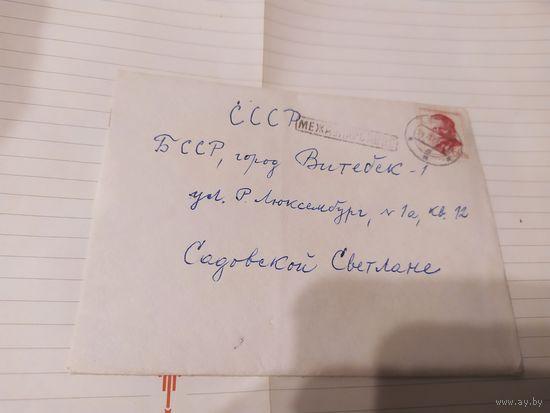 СССР
БССР, город Витебск-1
ул. Р. Люксембург, N 1а, кв. 12
Садовской Светлане
www.ay.by